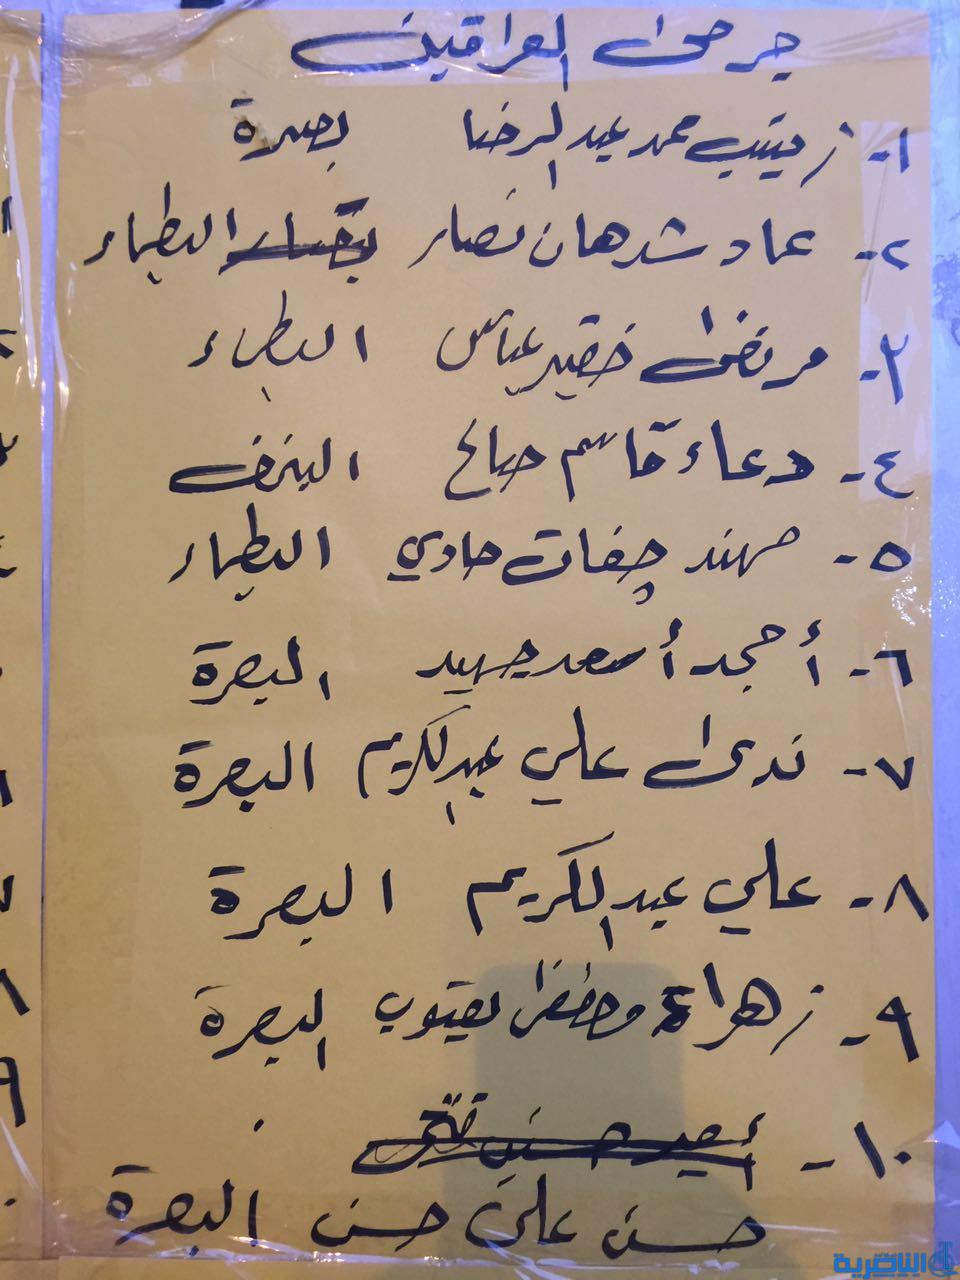 جرحى العراقين
١- زينب محمد عبد الرضا بصرة
٢- عماد شدهان نصار البطحاء
٣- مرتضى خضير عباس البطحاء
٤- دعاء قاسم صالح النجف
٥- مهند چفات هادي البطحاء
٦- أمجد أسعد البصرة
٧- ندى علي عبد الكريم البصرة
٨- علي عبد الكريم البصرة
٩- زهراء مصطفى يعقوب البصرة
١٠- أمير حسين
حسن علي حسن البصرة
الناصرية